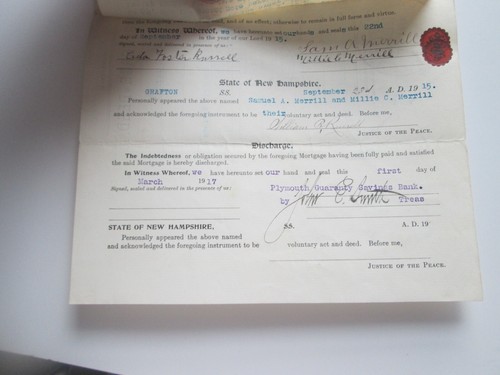 the foregoing
and of no effect; otherwise to remain in full force and virtue.
In Witness Whereof, we have hereunto set our hands and seals this 22nd
day of September in the year of our Lord 1915.
Signed, sealed and delivered in presence of us:
Sam A. Merrill
Millie C. Merrill
Foster Russell
State of New Hampshire.
GRAFTON SS. September 23d A. D. 1915.
Personally appeared the above named Samuel A. Merrill and Millie C. Merrill
and acknowledged the foregoing instrument to be their voluntary act and deed. Before me,
JUSTICE OF THE PEACE.
Discharge.
The Indebtedness or obligation secured by the foregoing Mortgage having been fully paid and satisfied
the said Mortgage is hereby discharged.
In Witness Whereof, we have hereunto set our hand and seal this first day of
March 1917
Signed, sealed and delivered in presence of us:
Plymouth Guaranty Savings Bank.
by John E. Smith Treas
STATE OF NEW HAMPSHIRE, SS. A. D. 19
Personally appeared the above named
and acknowledged the foregoing instrument to be voluntary act and deed. Before me,
JUSTICE OF THE PEACE.